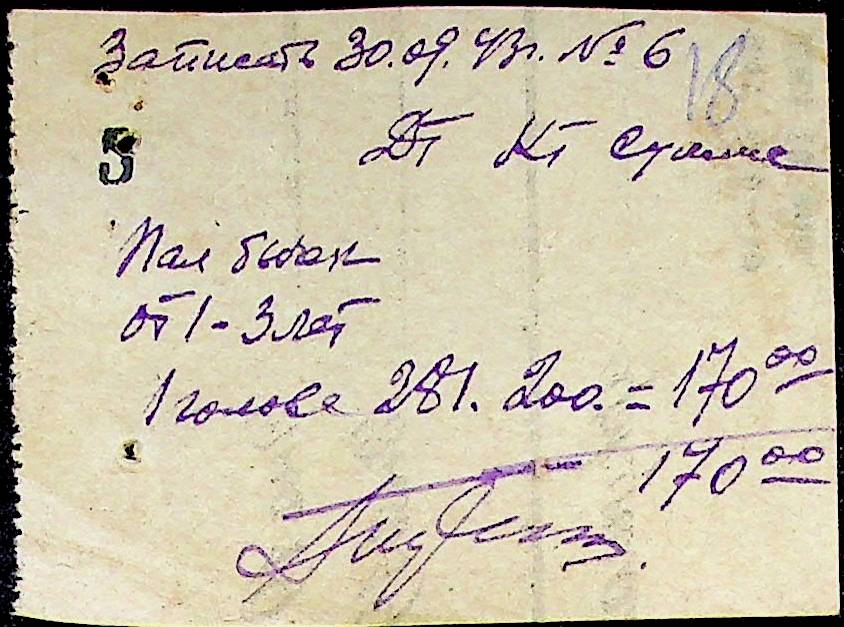 Записать 30.09.43г. № 6
18
5
Дт Кт Сумма
Пал бычок
от 1-3 лет
1 голова 281. 200. = 170 00
170 00